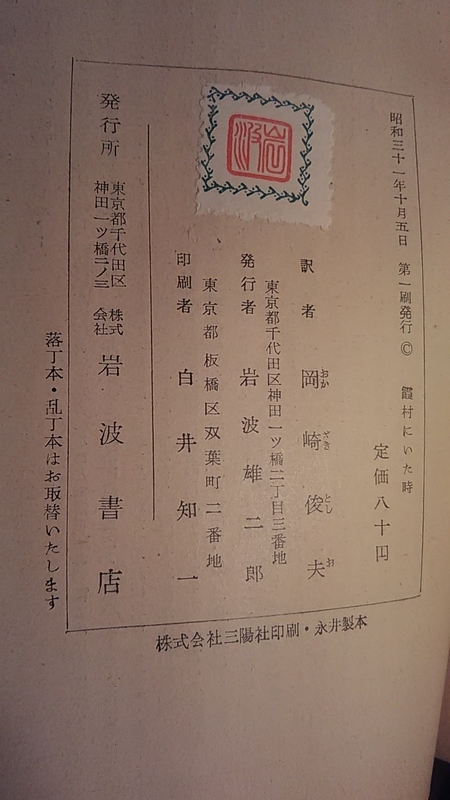 昭和三十一年十月五日 第一刷発行 © 霞村にいた時
定価八十円
訳者 岡崎俊夫
おか ざき とし お
東京都千代田区神田一ツ橋二丁目三番地
発行者 岩波雄二郎
東京都板橋区双葉町二番地
印刷者 白井知一
発行所 東京都千代田区神田一ツ橋二ノ三 株式会社 岩波書店
株式会社三陽社印刷・永井製本
落丁本・乱丁本はお取替いたします
岩波